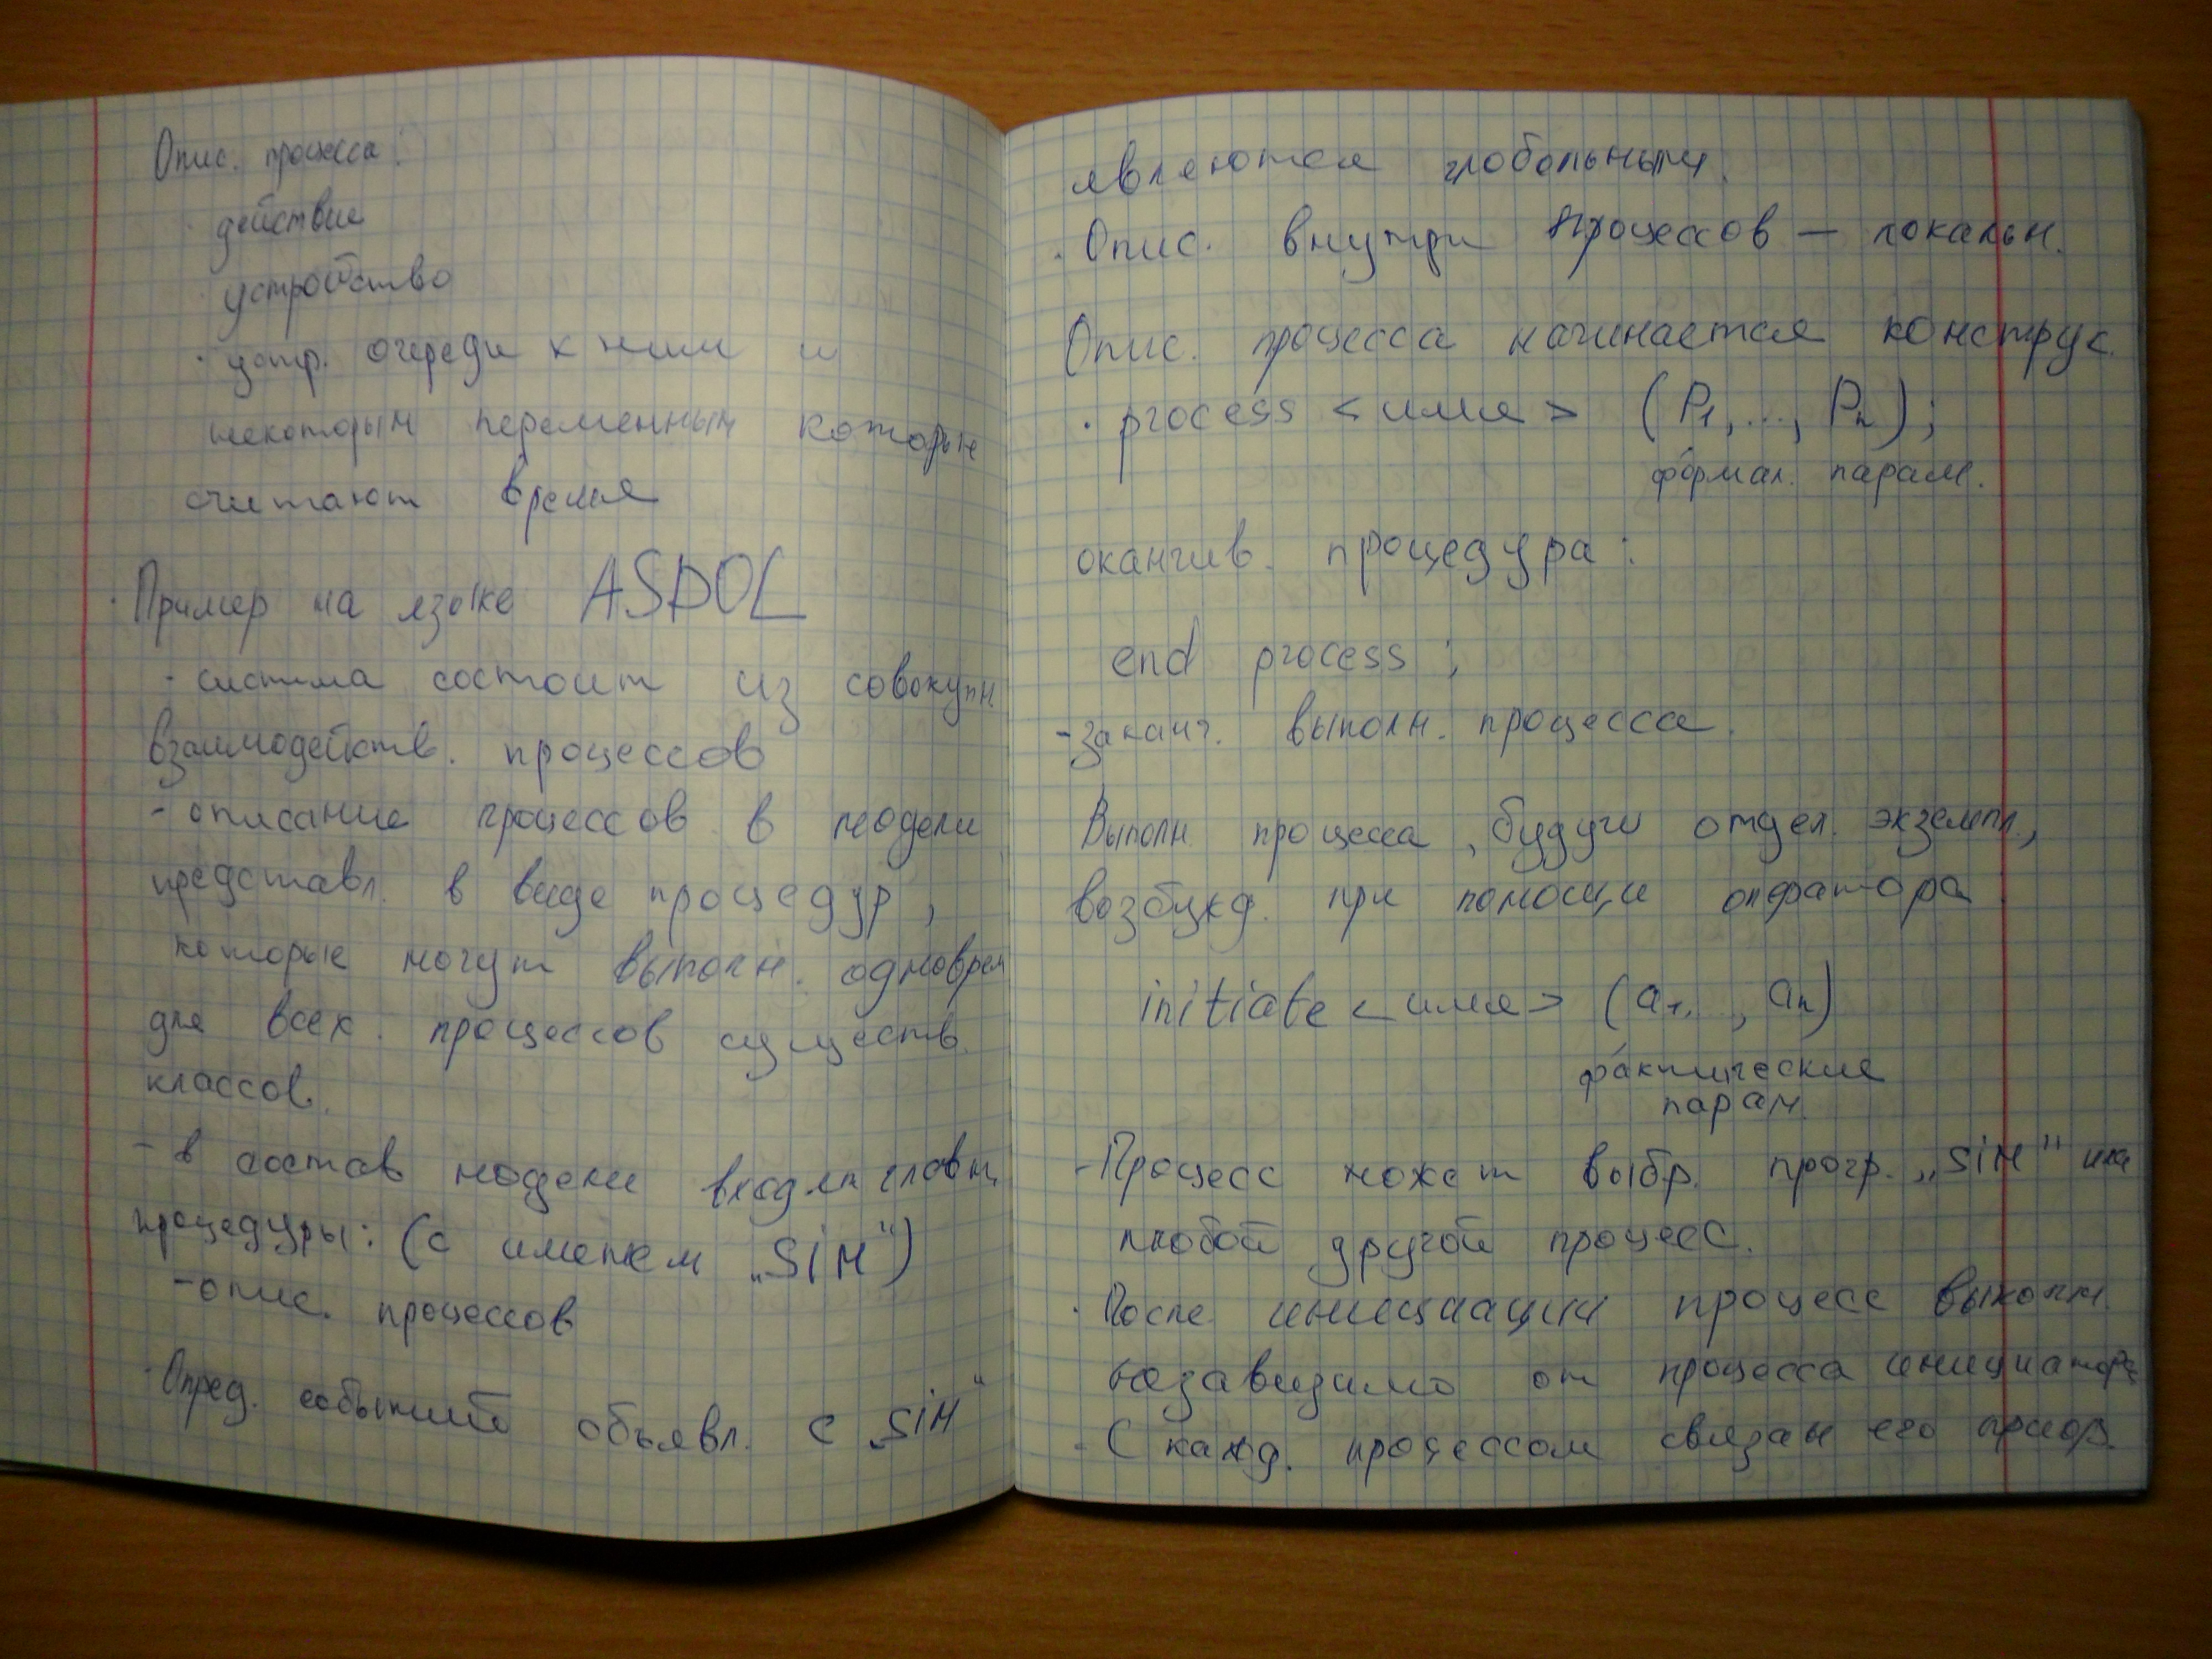 Опис. процесса:
· действие
· устройство
· устр. очереди к ним и
некоторым переменным которые
считают время
· Пример на языке ASDOL
- система состоит из совокупн.
взаимодейств. процессов
- описание процессов в модели
представл. в виде процедур,
которые могут выполн. одноврем
для всех процессов существ.
классов.
- в состав модели входят главн.
процедуры: (с именем „SiM“)
- опис. процессов
· Опред. событий объявл. с „SiM“
являются глобальными.
· Опис. внутри процессов — локальн.
Опис. процесса начинается конструк.
· process <имя> (P1, ..., Pn);
формал. парам.
оканчив. процедура:
end process ;
- заканч. выполн. процесса.
Выполн. процесса, будучи отдел. экземпл.,
возбужд. при помощи оператора
initiate <имя> (a1, ..., an)
фактические
парам.
- Процесс может выбр. прогр. „SiM“ или
любой другой процесс.
· После инициации процесс выполн.
независимо от процесса инициатора
- С кажд. процессом связан его приор.